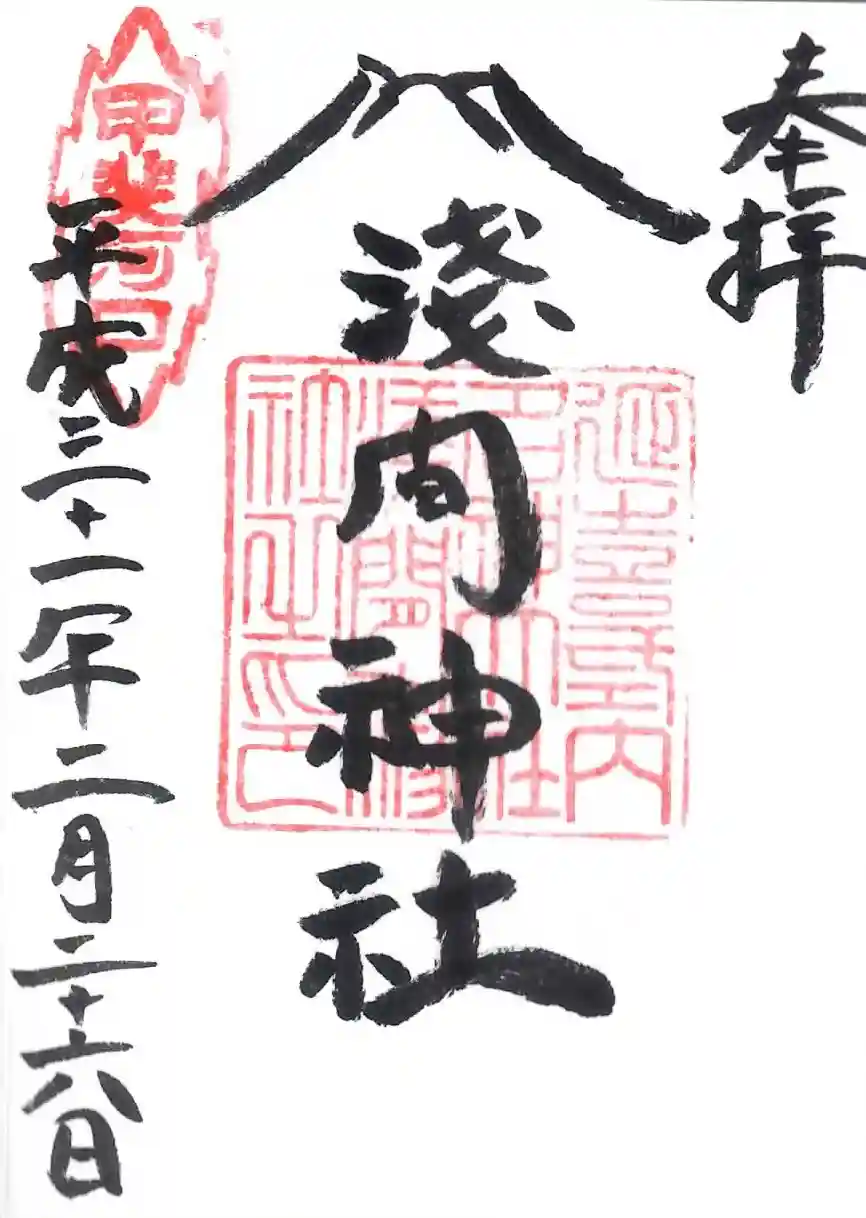 奉拝
淺間神社
延喜式内
名神大社
淺間神
社之印
甲斐河口
平成三十一年二月二十六日